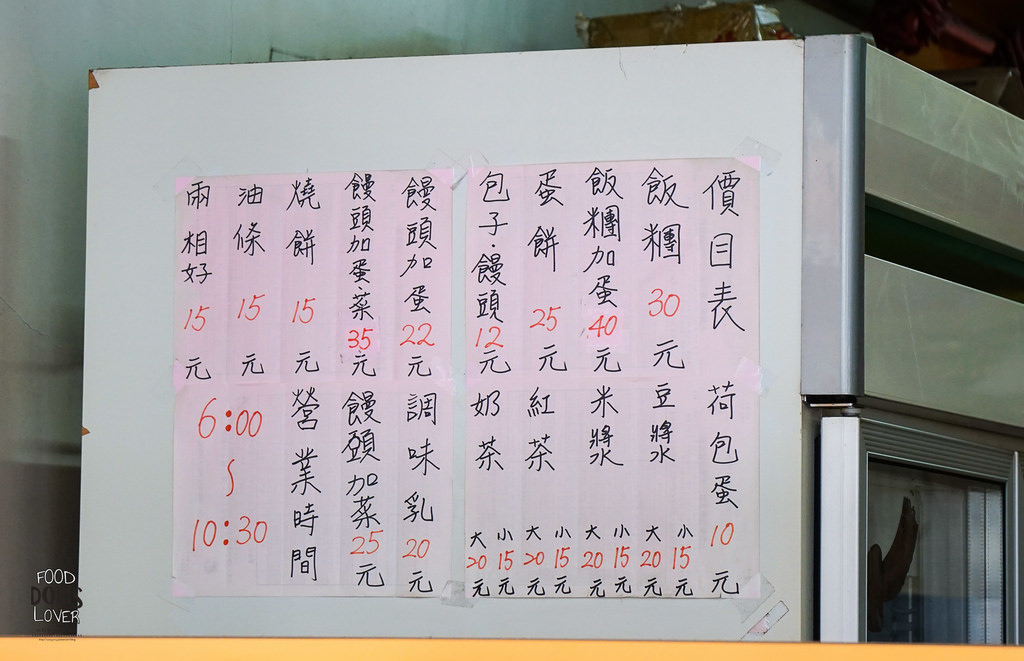 價目表
飯糰 30元
飯糰加蛋 40元
蛋餅 25元
包子·饅頭 12元
饅頭加蛋 22元
饅頭加蛋·菜 35元
燒餅 15元
油條 15元
兩相好 15元
荷包蛋 10元
豆漿 小15元 大20元
米漿 小15元 大20元
紅茶 小15元 大20元
奶茶 小15元 大20元
調味乳 20元
饅頭加菜 25元
營業時間
6:00
~
10:30
FOOD
LOVER